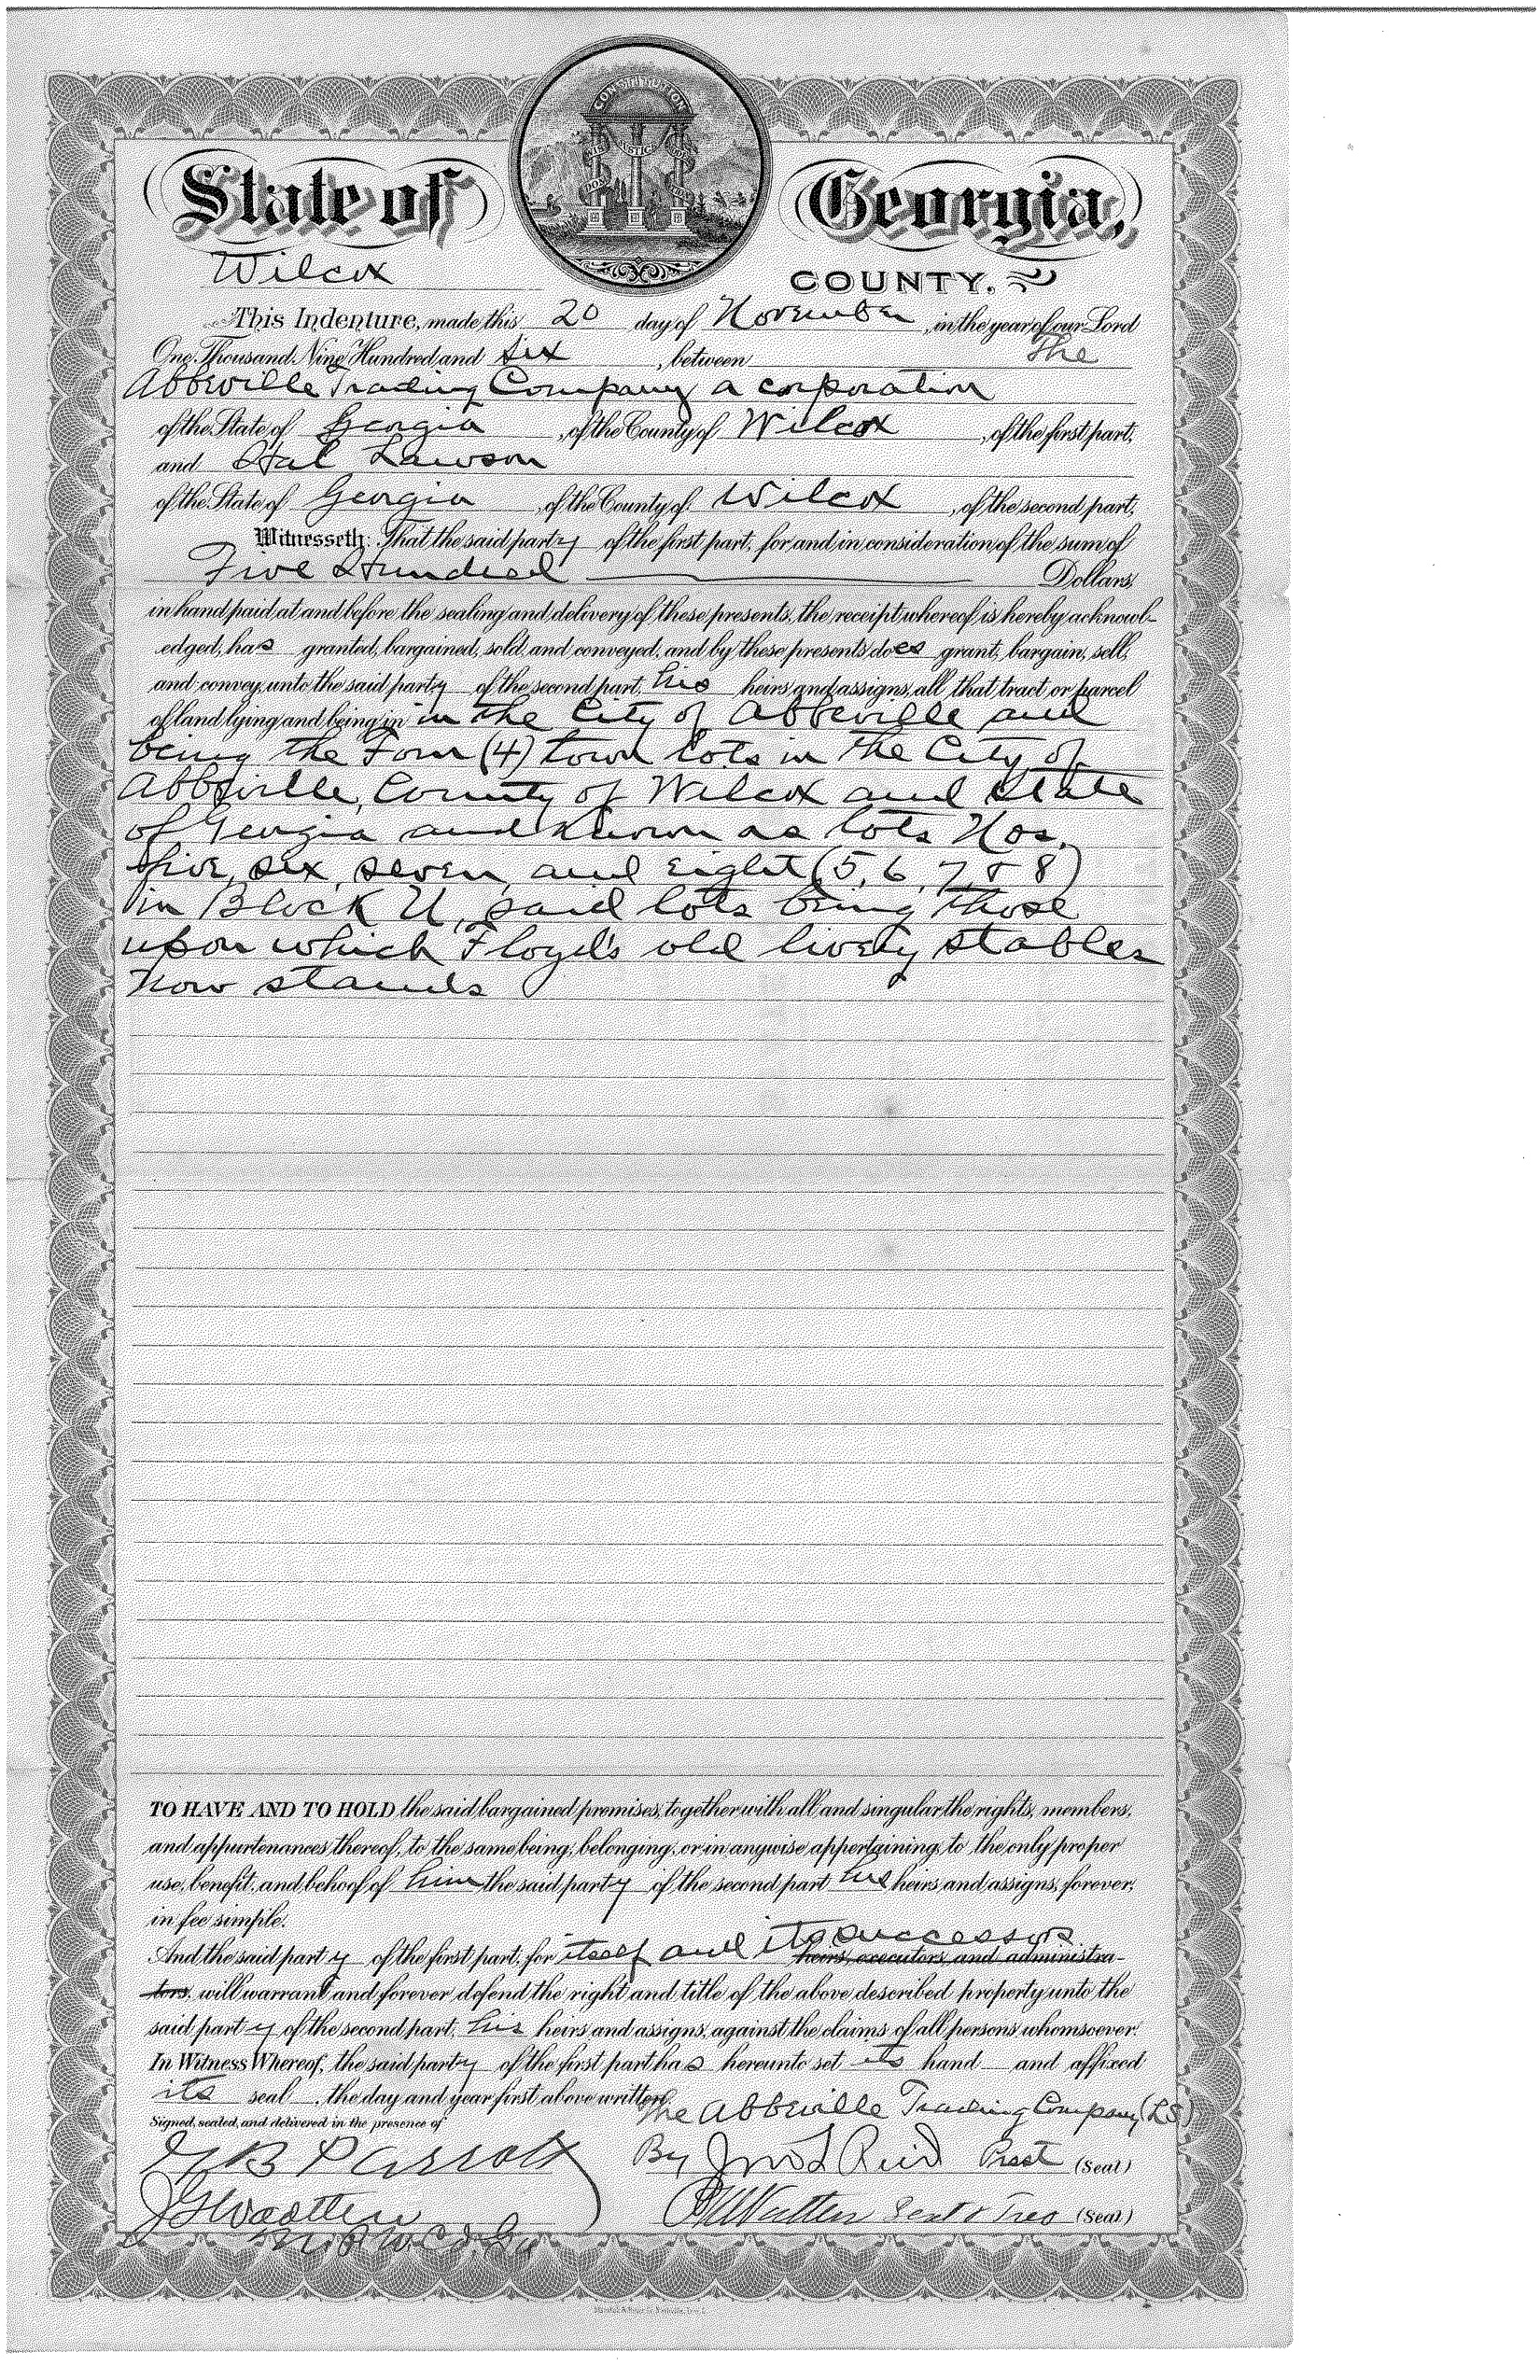 CONSTITUTION
State of Georgia,
Wilcox COUNTY.
This Indenture, made this 20 day of November, in the year of our Lord
One Thousand Nine Hundred and Six, between The
Abbeville Trading Company a corporation
of the State of Georgia, of the County of Wilcox, of the first part,
and Hal Lawson
of the State of Georgia, of the County of Wilcox, of the second part,
Witnesseth: That the said party of the first part, for and in consideration of the sum of
Five Hundred Dollars,
in hand paid at and before the sealing and delivery of these presents, the receipt whereof is hereby acknowl-
edged, has granted, bargained, sold, and conveyed, and by these presents does grant, bargain, sell,
and convey, unto the said party of the second part, his heirs and assigns, all that tract or parcel
of land lying and being in in the City of Abbeville and
being the Four (4) town lots in the City of
Abbeville, County of Wilcox and State
of Georgia and known as lots Nos.
five, six, seven, and eight (5, 6, 7, & 8)
in Block U, said lots being those
upon which Floyd's old livery stables
now stands
TO HAVE AND TO HOLD the said bargained premises, together with all and singular the rights, members,
and appurtenances thereof, to the same being, belonging, or in anywise appertaining, to the only proper
use, benefit, and behoof of him the said party of the second part his heirs and assigns, forever,
in fee simple.
And the said party of the first part, for itself and its successors heirs, executors, and administra-
tors, will warrant and forever defend the right and title of the above described property unto the
said party of the second part, his heirs and assigns, against the claims of all persons whomsoever.
In Witness Whereof, the said party of the first part has hereunto set its hand and affixed
its seal, the day and year first above written.
The Abbeville Trading Company (LS)
Signed, sealed, and delivered in the presence of
By Jno L Reid Prest (Seal)
(Seal)